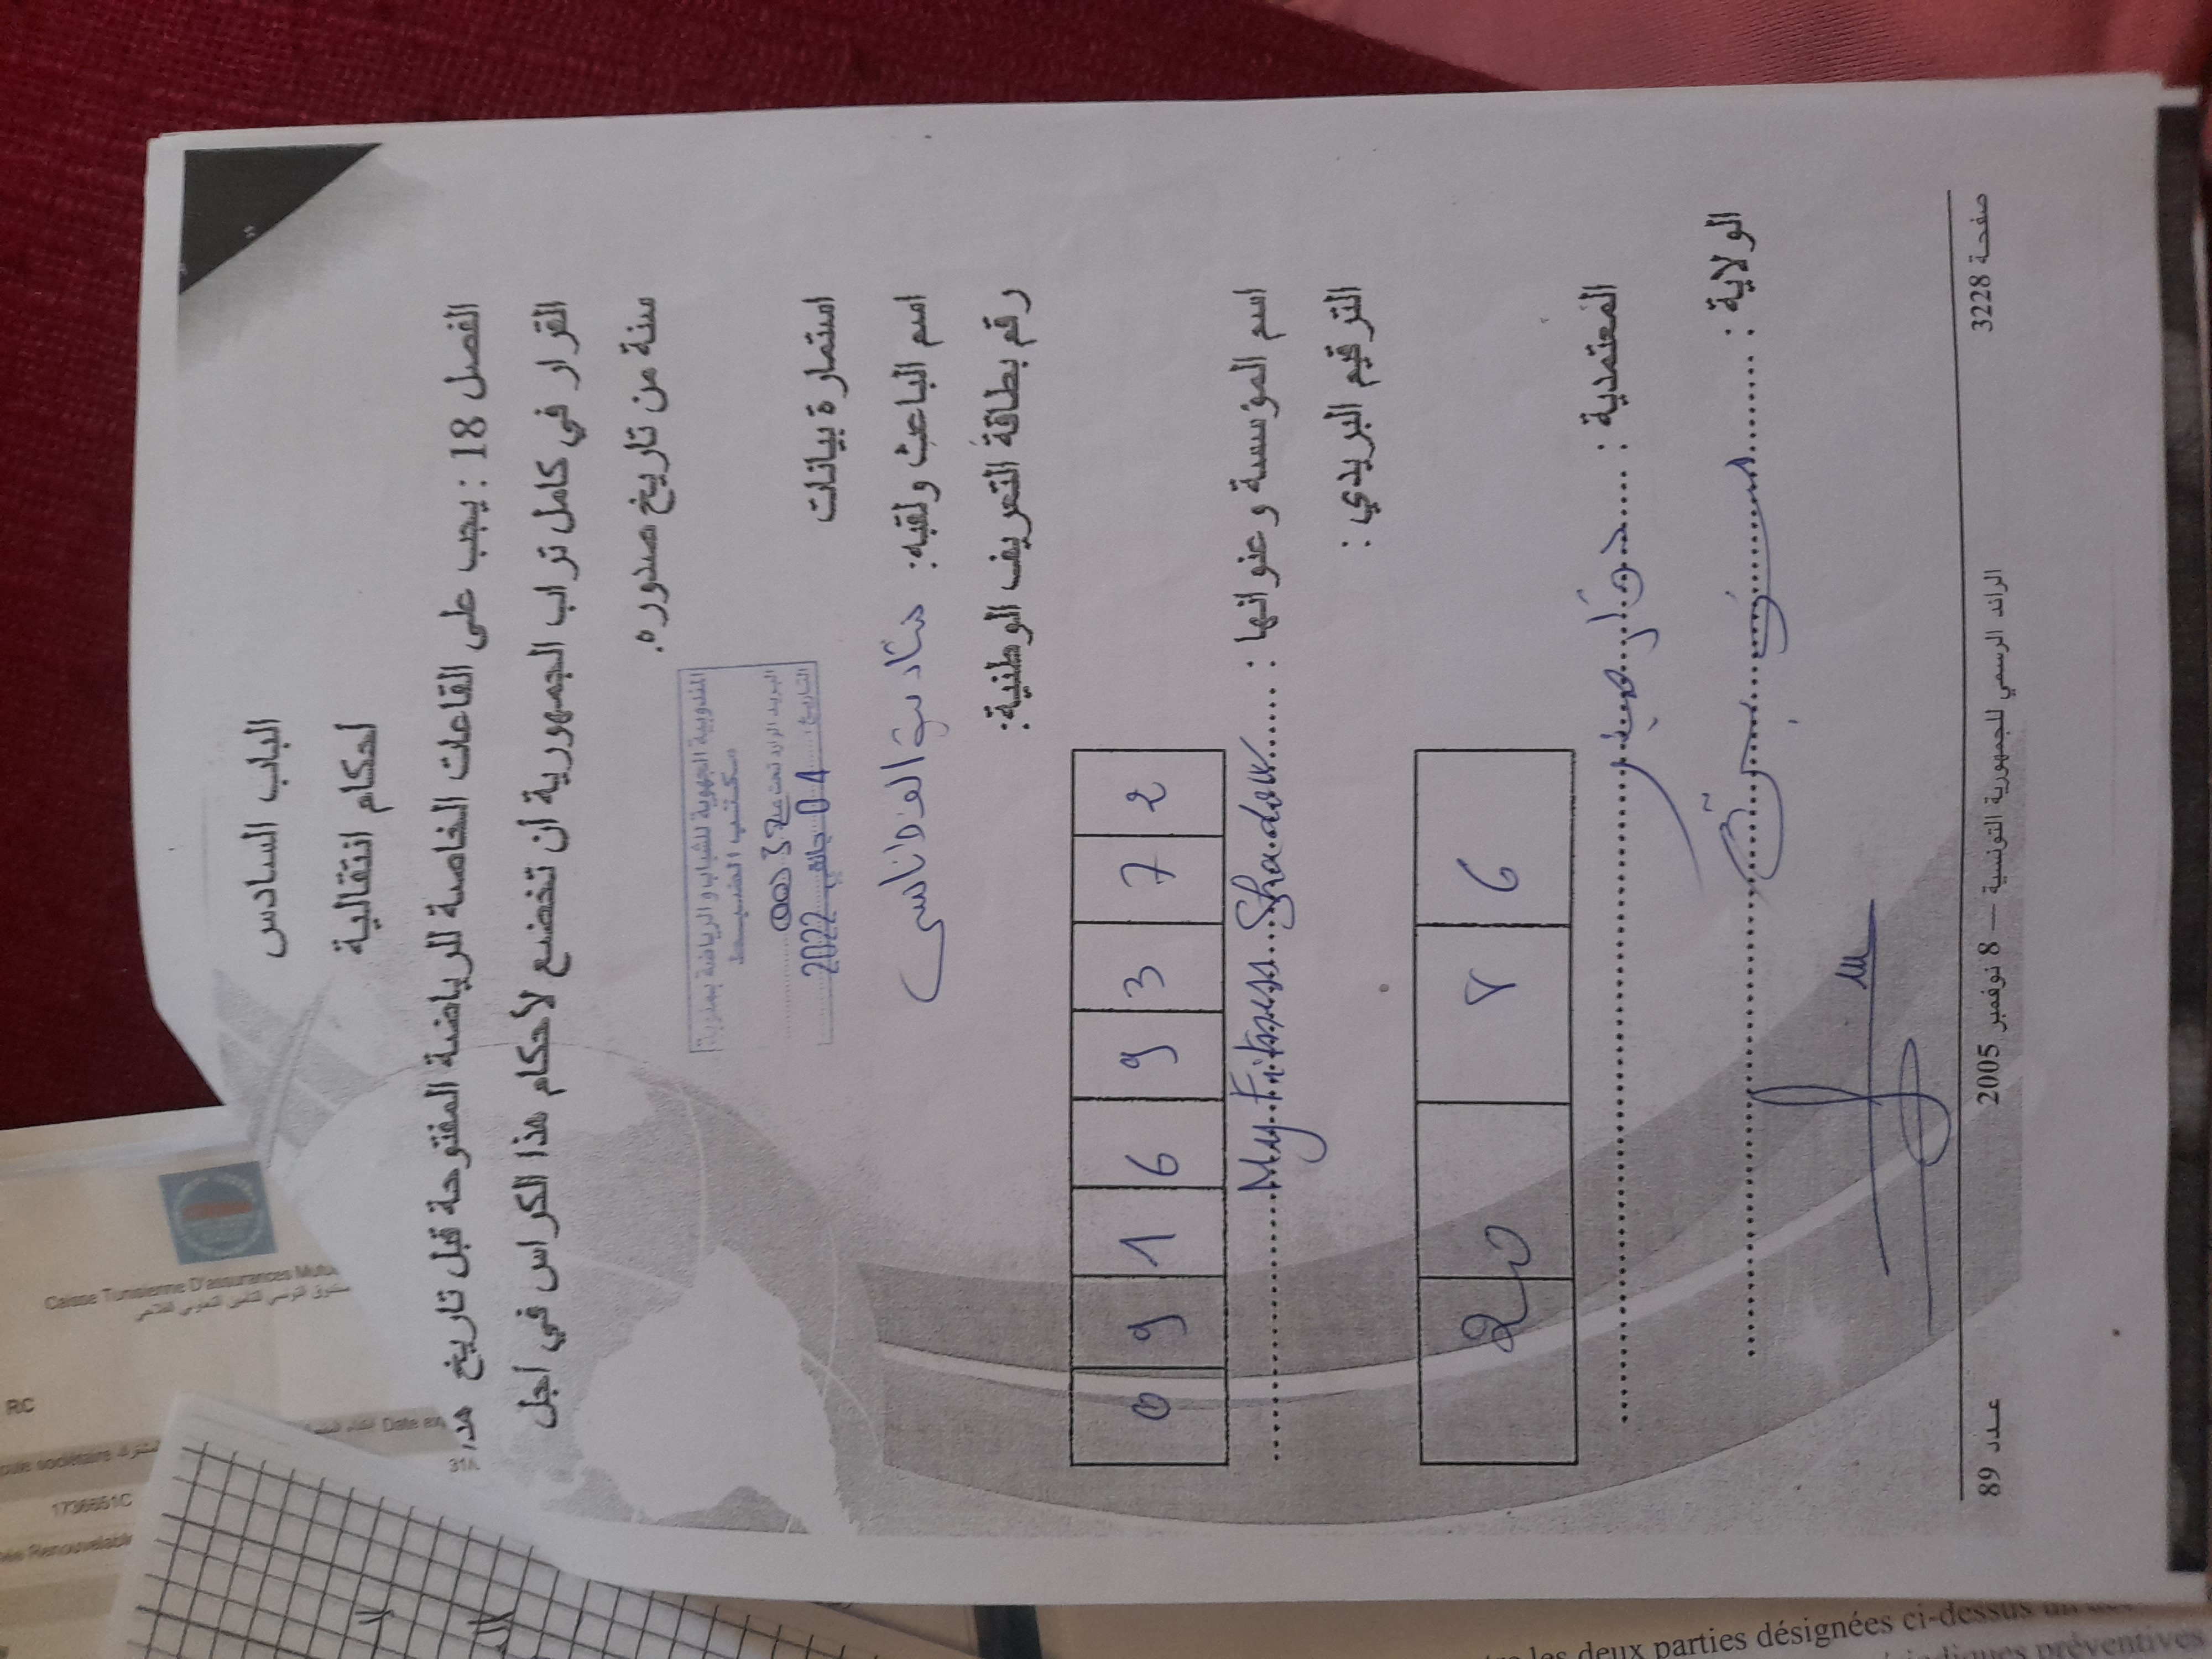 الباب السادس
أحكام انتقالية
الفصل 18 : يجب على القاعات الخاصة للرياضة المفتوحة قبل تاريخ هذا
القرار في كامل تراب الجمهورية أن تخضع لأحكام هذا الكراس في أجل
سنة من تاريخ صدوره.
المندوبية الجهوية للشباب والرياضة بمنوبة
مكتب الضبط
البريد الوارد تحت عدد 0032
التاريخ: 04 جانفي 2022
استمارة بيانات
اسم الباعث ولقبه:
رقم بطاقة التعريف الوطنية:
0 9 1 6 9 3 7 2
اسم المؤسسة وعنوانها : My Fitness Shadow
الترقيم البريدي :
20 8 6
المعتمدية : دوار هيشر
الولاية :
صفحة 3228
الرائد الرسمي للجمهورية التونسية — 8 نوفمبر 2005
عدد 89
Caisse Tunisienne D'assurances
RC
Date
31A
1736651C
Renouvelable
les deux parties désignées ci-dessus un
préventives